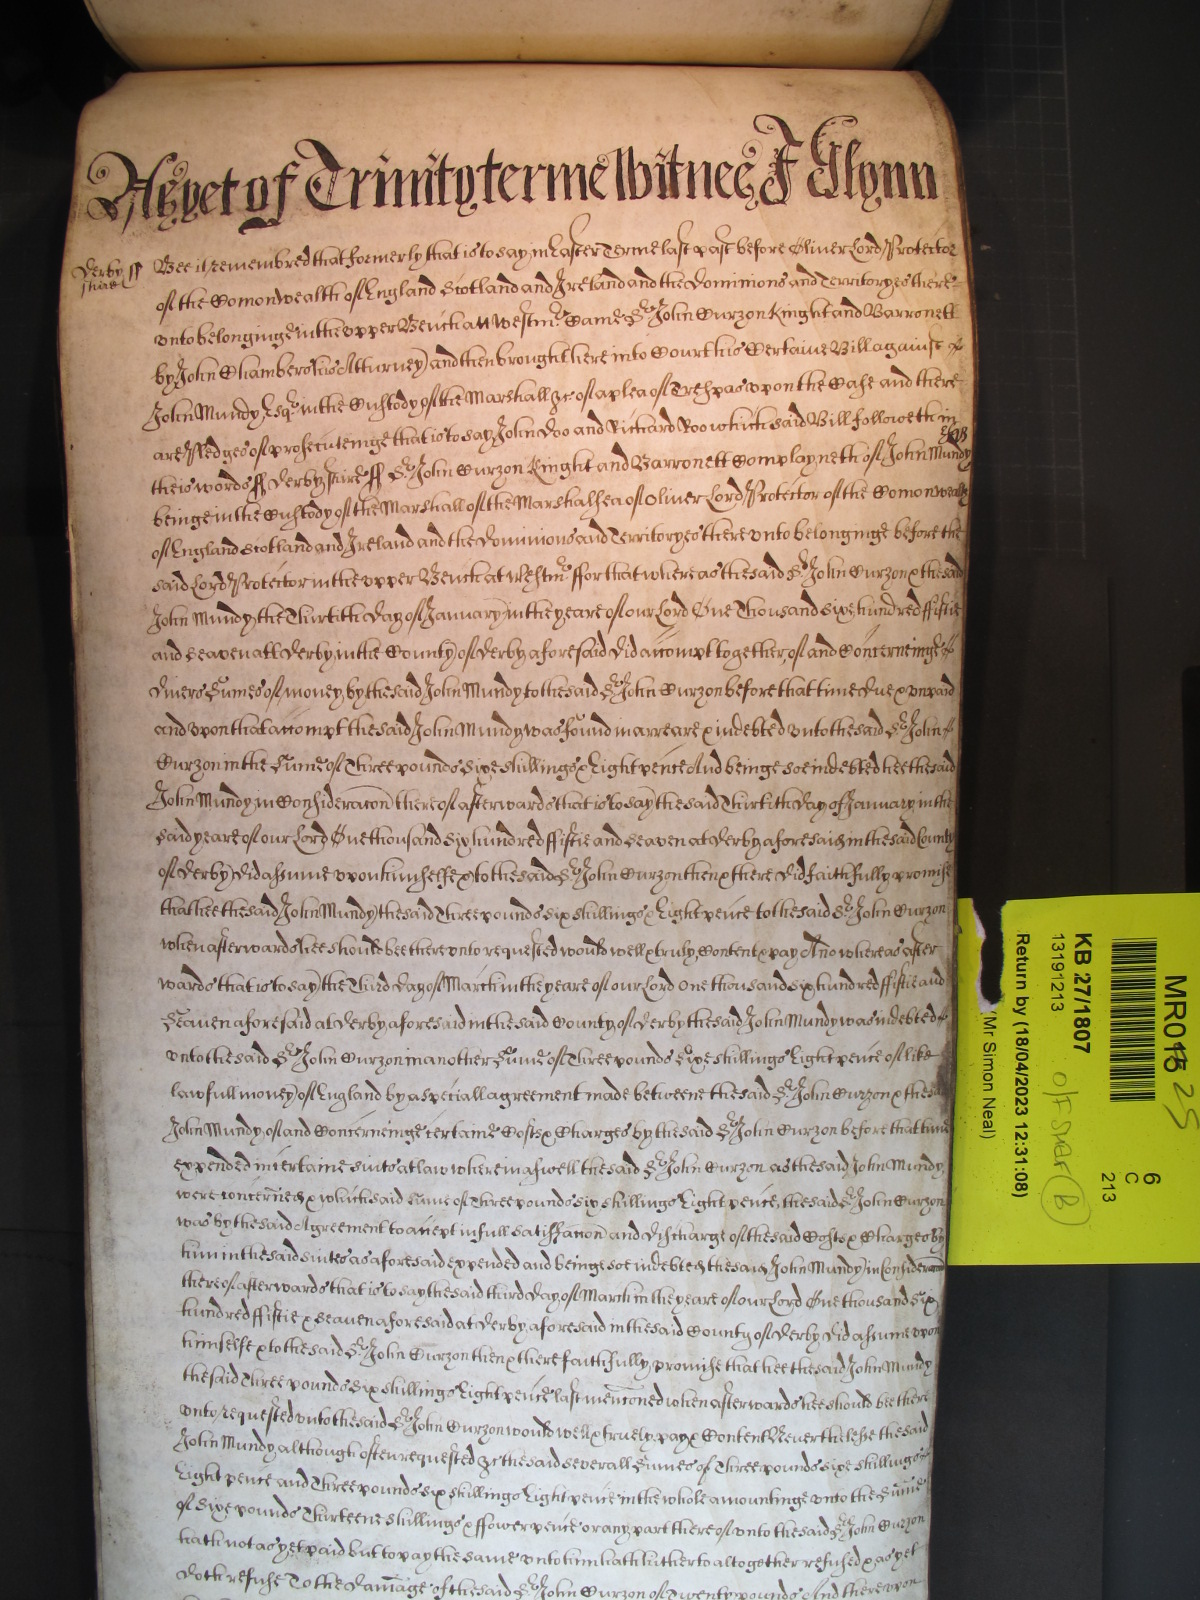 As yet of Trinity terme Witnes J Glynn
Derby shire ss Bee it remembred that formerly that is to say in Easter Terme last past before Oliver Lord Protector
of the Comonwealth of England Scotland and Ireland and the Dominions and Territoryes there
unto belonginge in the upper Bench att Westmr Came Sr John Curzon Knight and Barronett
by John Chambers his Atturney and then brought here into Court his Certaine Bill against
John Mundy Esqr in the Custody of the Marshall &c of a plea of Trespas upon the Case and there
are Pledges of prosecuteinge that is to say John Doo and Richard Roo which said Bill followeth in
theis words ss Derbyshire ss Sr John Curzon Knight and Barronett Complayneth of John Mundy Esqr
beinge in the Custody of the Marshall of the Marshalsea of Oliver Lord Protector of the Comonwealth
of England Scotland and Ireland and the Dominions and Territoryes there unto belonginge before the
said Lord Protector in the upper Bench at Westmr ffor that whereas the said Sr John Curzon & the said
John Mundy the Thirtith day of January in the yeare of our Lord One Thousand Sixe hundred ffiftie
and Seaven att Derby in the County of Derby aforesaid did accompt together of and Concerneinge
divers Sumes of money by the said John Mundy to the said Sr John Curzon before that time due & unpaid
and upon that accompt the said John Mundy was found in arreare & indebted unto the said Sr John
Curzon in the Sume of Three pounds Sixe shillings & Eight pence And beinge soe indebted hee the said
John Mundy in Consideracon thereof afterwards that is to say the said Thirtith day of January in the
said yeare of our Lord One thousand Six hundred ffiftie and Seaven at Derby aforesaid in the said County
of Derby did assume upon himselfe & to the said Sr John Curzon then & there did faithfully promise
that hee the said John Mundy the said Three pounds six shillings & Eight pence to the said Sr John Curzon
when afterwards hee should bee there unto requested would well & truly Content & pay And whereas after
wards that is to say the Third day of March in the yeare of our Lord One thousand six hundred ffiftie and
Seaven aforesaid at Derby aforesaid in the said County of Derby the said John Mundy was indebted
unto the said Sr John Curzon in another Sume of Three pounds Sixe shillings Eight pence of like
lawfull money of England by a speciall agreement made betweene the said Sr John Curzon & the said
John Mundy of and Concerneinge certaine Costs & Charges by the said Sr John Curzon before that time
expended in certaine suits at law wherein aswell the said Sr John Curzon as the said John Mundy
were concerned & which said Sume of Three pounds six shillings Eight pence the said Sr John Curzon
was by the said Agreement to accept in full satisfaccon and discharge of the said Costs & Charges by
him in the said suites as aforesaid expended and beinge soe indebted the said John Mundy in Consideracon
thereof afterwards that is to say the said third day of March in the yeare of our Lord One thousand Six
hundred ffiftie & Seaven aforesaid at Derby aforesaid in the said County of Derby did assume upon
himselfe & to the said Sr John Curzon then & there faithfully promise that hee the said John Mundy
the said Three pounds six shillings Eight pence last mencioned when afterwards hee should bee there
unto requested unto the said Sr John Curzon would well & truely pay & Content Neverthelesse the said
John Mundy although often requested &c the said severall Sumes of Three pounds sixe shillings
Eight pence and Three pounds six shillings Eight pence in the whole amountinge unto the Sume
of Sixe pounds Thirteene shillings & ffower pence or any part thereof unto the said Sr John Curzon
hath not as yet paid but to pay the same unto him hath hitherto altogether refused & as yet
doth refuse To the damage of the said Sr John Curzon of Twenty pounds And thereupon
MR015 25
6
C
213
KB 27/1807
13191213
Return by (18/04/2023 12:31:08)
(Mr Simon Neal)